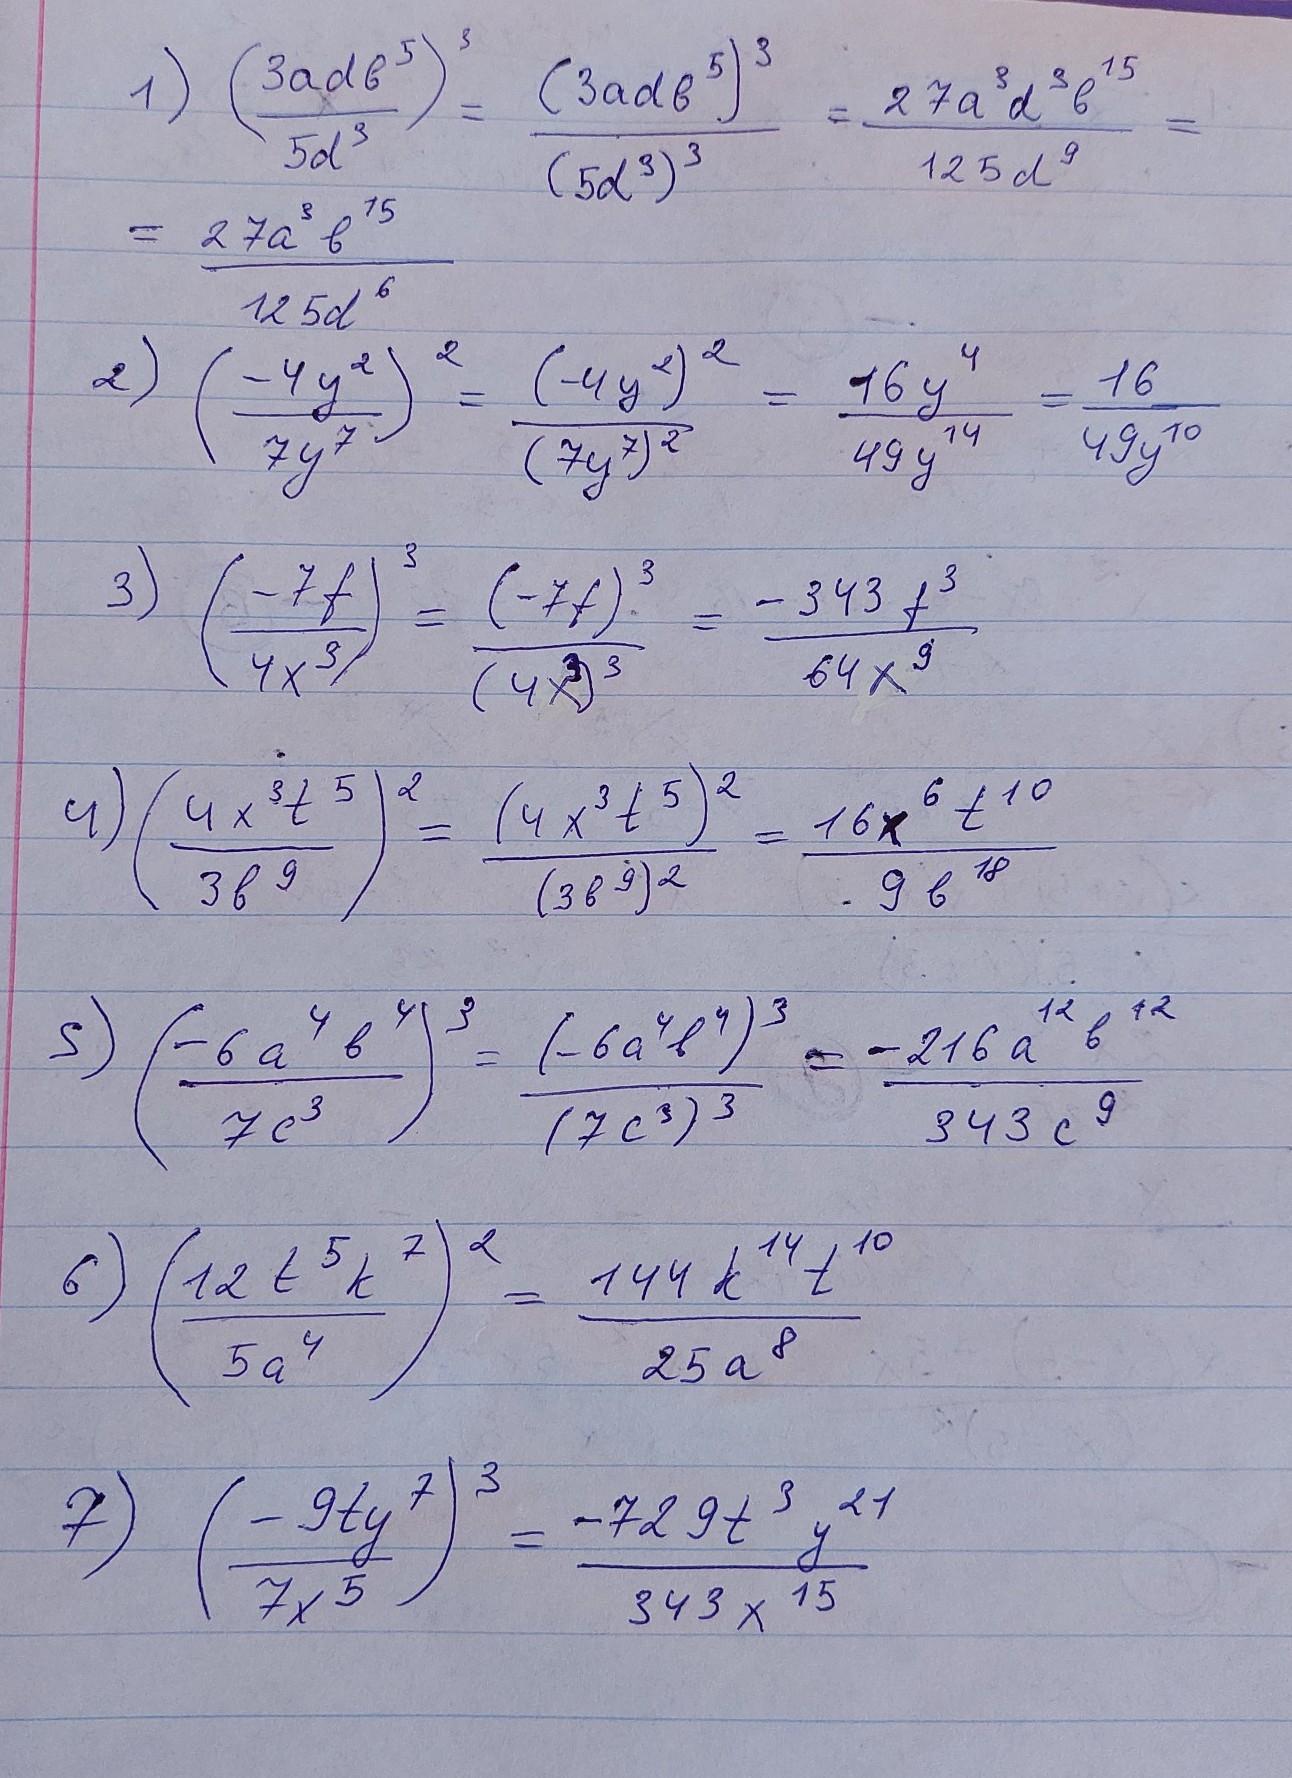 1) (3adb⁵/5d³)³ = (3adb⁵)³/(5d³)³ = 27a³d³b¹⁵/125d⁹ =
= 27a³b¹⁵/125d⁶
2) (-4y²/7y⁷)² = (-4y²)²/(7y⁷)² = 16y⁴/49y¹⁴ = 16/49y¹⁰
3) (-7f/4x³)³ = (-7f)³/(4x³)³ = -343f³/64x⁹
4) (4x³t⁵/3b⁹)² = (4x³t⁵)²/(3b⁹)² = 16x⁶t¹⁰/9b¹⁸
5) (-6a⁴b⁴/7c³)³ = (-6a⁴b⁴)³/(7c³)³ = -216a¹²b¹²/343c⁹
6) (12t⁵k⁷/5a⁴)² = 144k¹⁴t¹⁰/25a⁸
7) (-9ty⁷/7x⁵)³ = -729t³y²¹/343x¹⁵